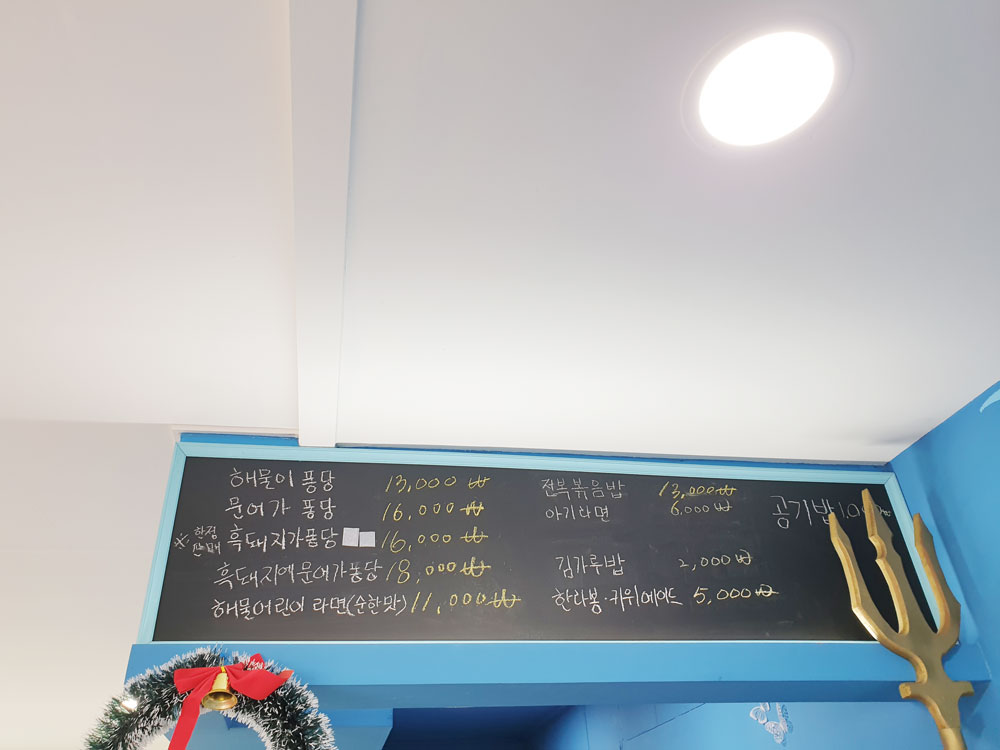 해물이 퐁당 13,000 ₩
문어가 퐁당 16,000 ₩
※ 한정 판매 흑돼지가퐁당 16,000 ₩
흑돼지에문어가퐁당 18,000 ₩
해물어린이 라면(순한맛) 11,000₩
전복볶음밥 13,000₩
아기라면 6,000₩
김가루밥 2,000₩
한라봉·키위에이드 5,000₩
공기밥